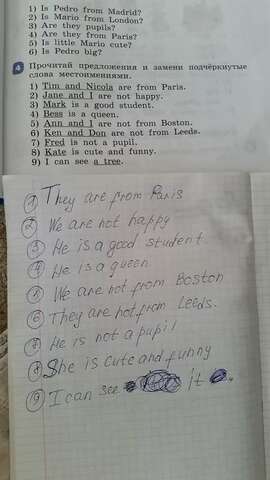 1) Is Pedro from Madrid?
2) Is Mario from London?
3) Are they pupils?
4) Are they from Paris?
5) Is little Mario cute?
6) Is Pedro big?
4 Прочитай предложения и замени подчёркнутые
слова местоимениями.
1) Tim and Nicola are from Paris.
2) Jane and I are not happy.
3) Mark is a good student.
4) Bess is a queen.
5) Ann and I are not from Boston.
6) Ken and Don are not from Leeds.
7) Fred is not a pupil.
8) Kate is cute and funny.
9) I can see a tree.
1 They are from Paris
2 We are not happy
3 He is a good student.
4 He is a queen
5 We are not from Boston
6 They are not from Leeds.
7 He is not a pupil
8 She is cute and funny
9 I can see it.